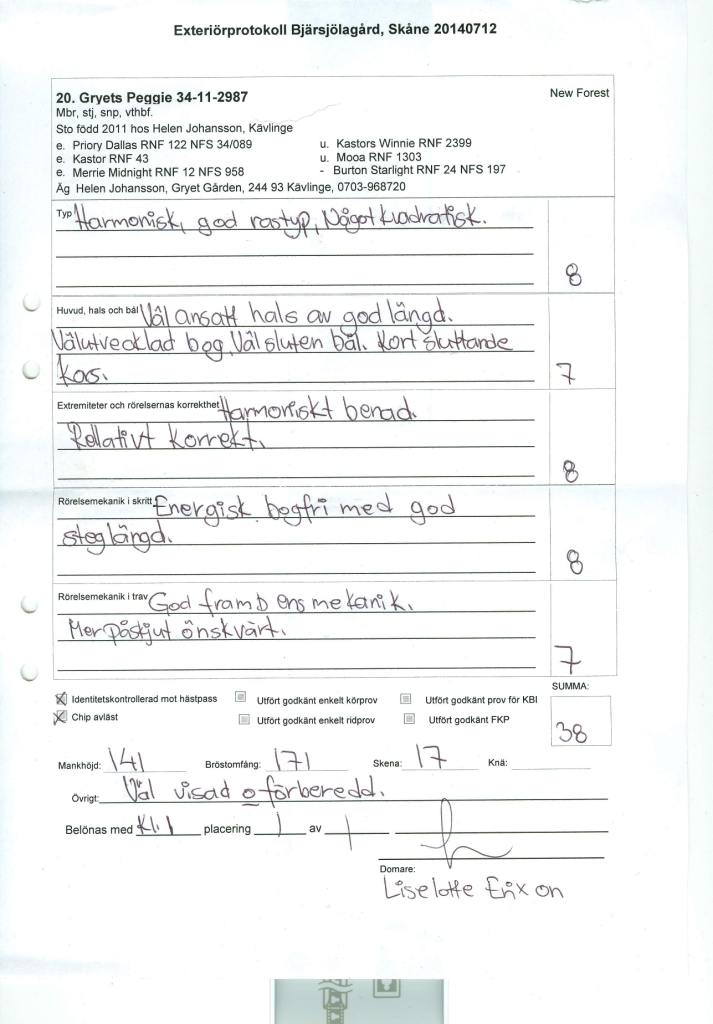 Exteriörprotokoll Bjärsjölagård, Skåne 20140712
20. Gryets Peggie 34-11-2987 New Forest
Mbr, stj, snp, vthbf.
Sto född 2011 hos Helen Johansson, Kävlinge
e. Priory Dallas RNF 122 NFS 34/089 u. Kastors Winnie RNF 2399
e. Kastor RNF 43 u. Mooa RNF 1303
e. Merrie Midnight RNF 12 NFS 958 - Burton Starlight RNF 24 NFS 197
Äg Helen Johansson, Gryet Gården, 244 93 Kävlinge, 0703-968720
Typ Harmonisk, god rastyp, Något kvadratisk.
8
Huvud, hals och bål Väl ansatt hals av god längd.
Välutvecklad bog, Väl sluten bål. Kort sluttande
kors.
7
Extremiteter och rörelsernas korrekthet Harmoniskt benad.
Rellativt korrekt.
8
Rörelsemekanik i skritt Energisk bogfri med god
steglängd.
8
Rörelsemekanik i trav God frambensmekanik.
Mer påskjut önskvärt.
7
Identitetskontrollerad mot hästpass Utfört godkänt enkelt körprov Utfört godkänt prov för KBI
Chip avläst Utfört godkänt enkelt ridprov Utfört godkänt FKP
SUMMA:
38
Mankhöjd: 141 Bröstomfång: 171 Skena: 17 Knä:
Övrigt: Väl visad o förberedd.
Belönas med Kl. 1 placering 1 av 1
Domare:
Liselotte Erixon